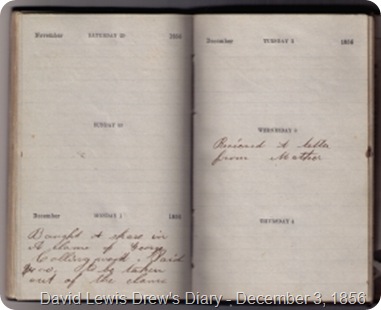 November SATURDAY 29 1856
SUNDAY 30
December MONDAY 1 1856
Bought A share in
A claim of George
Collingwood. Paid
to be taken
out of the claim
December TUESDAY 2 1856
WEDNESDAY 3
Recieved A letter
from Mother
THURSDAY 4
David Lewis Drew's Diary - December 3, 1856